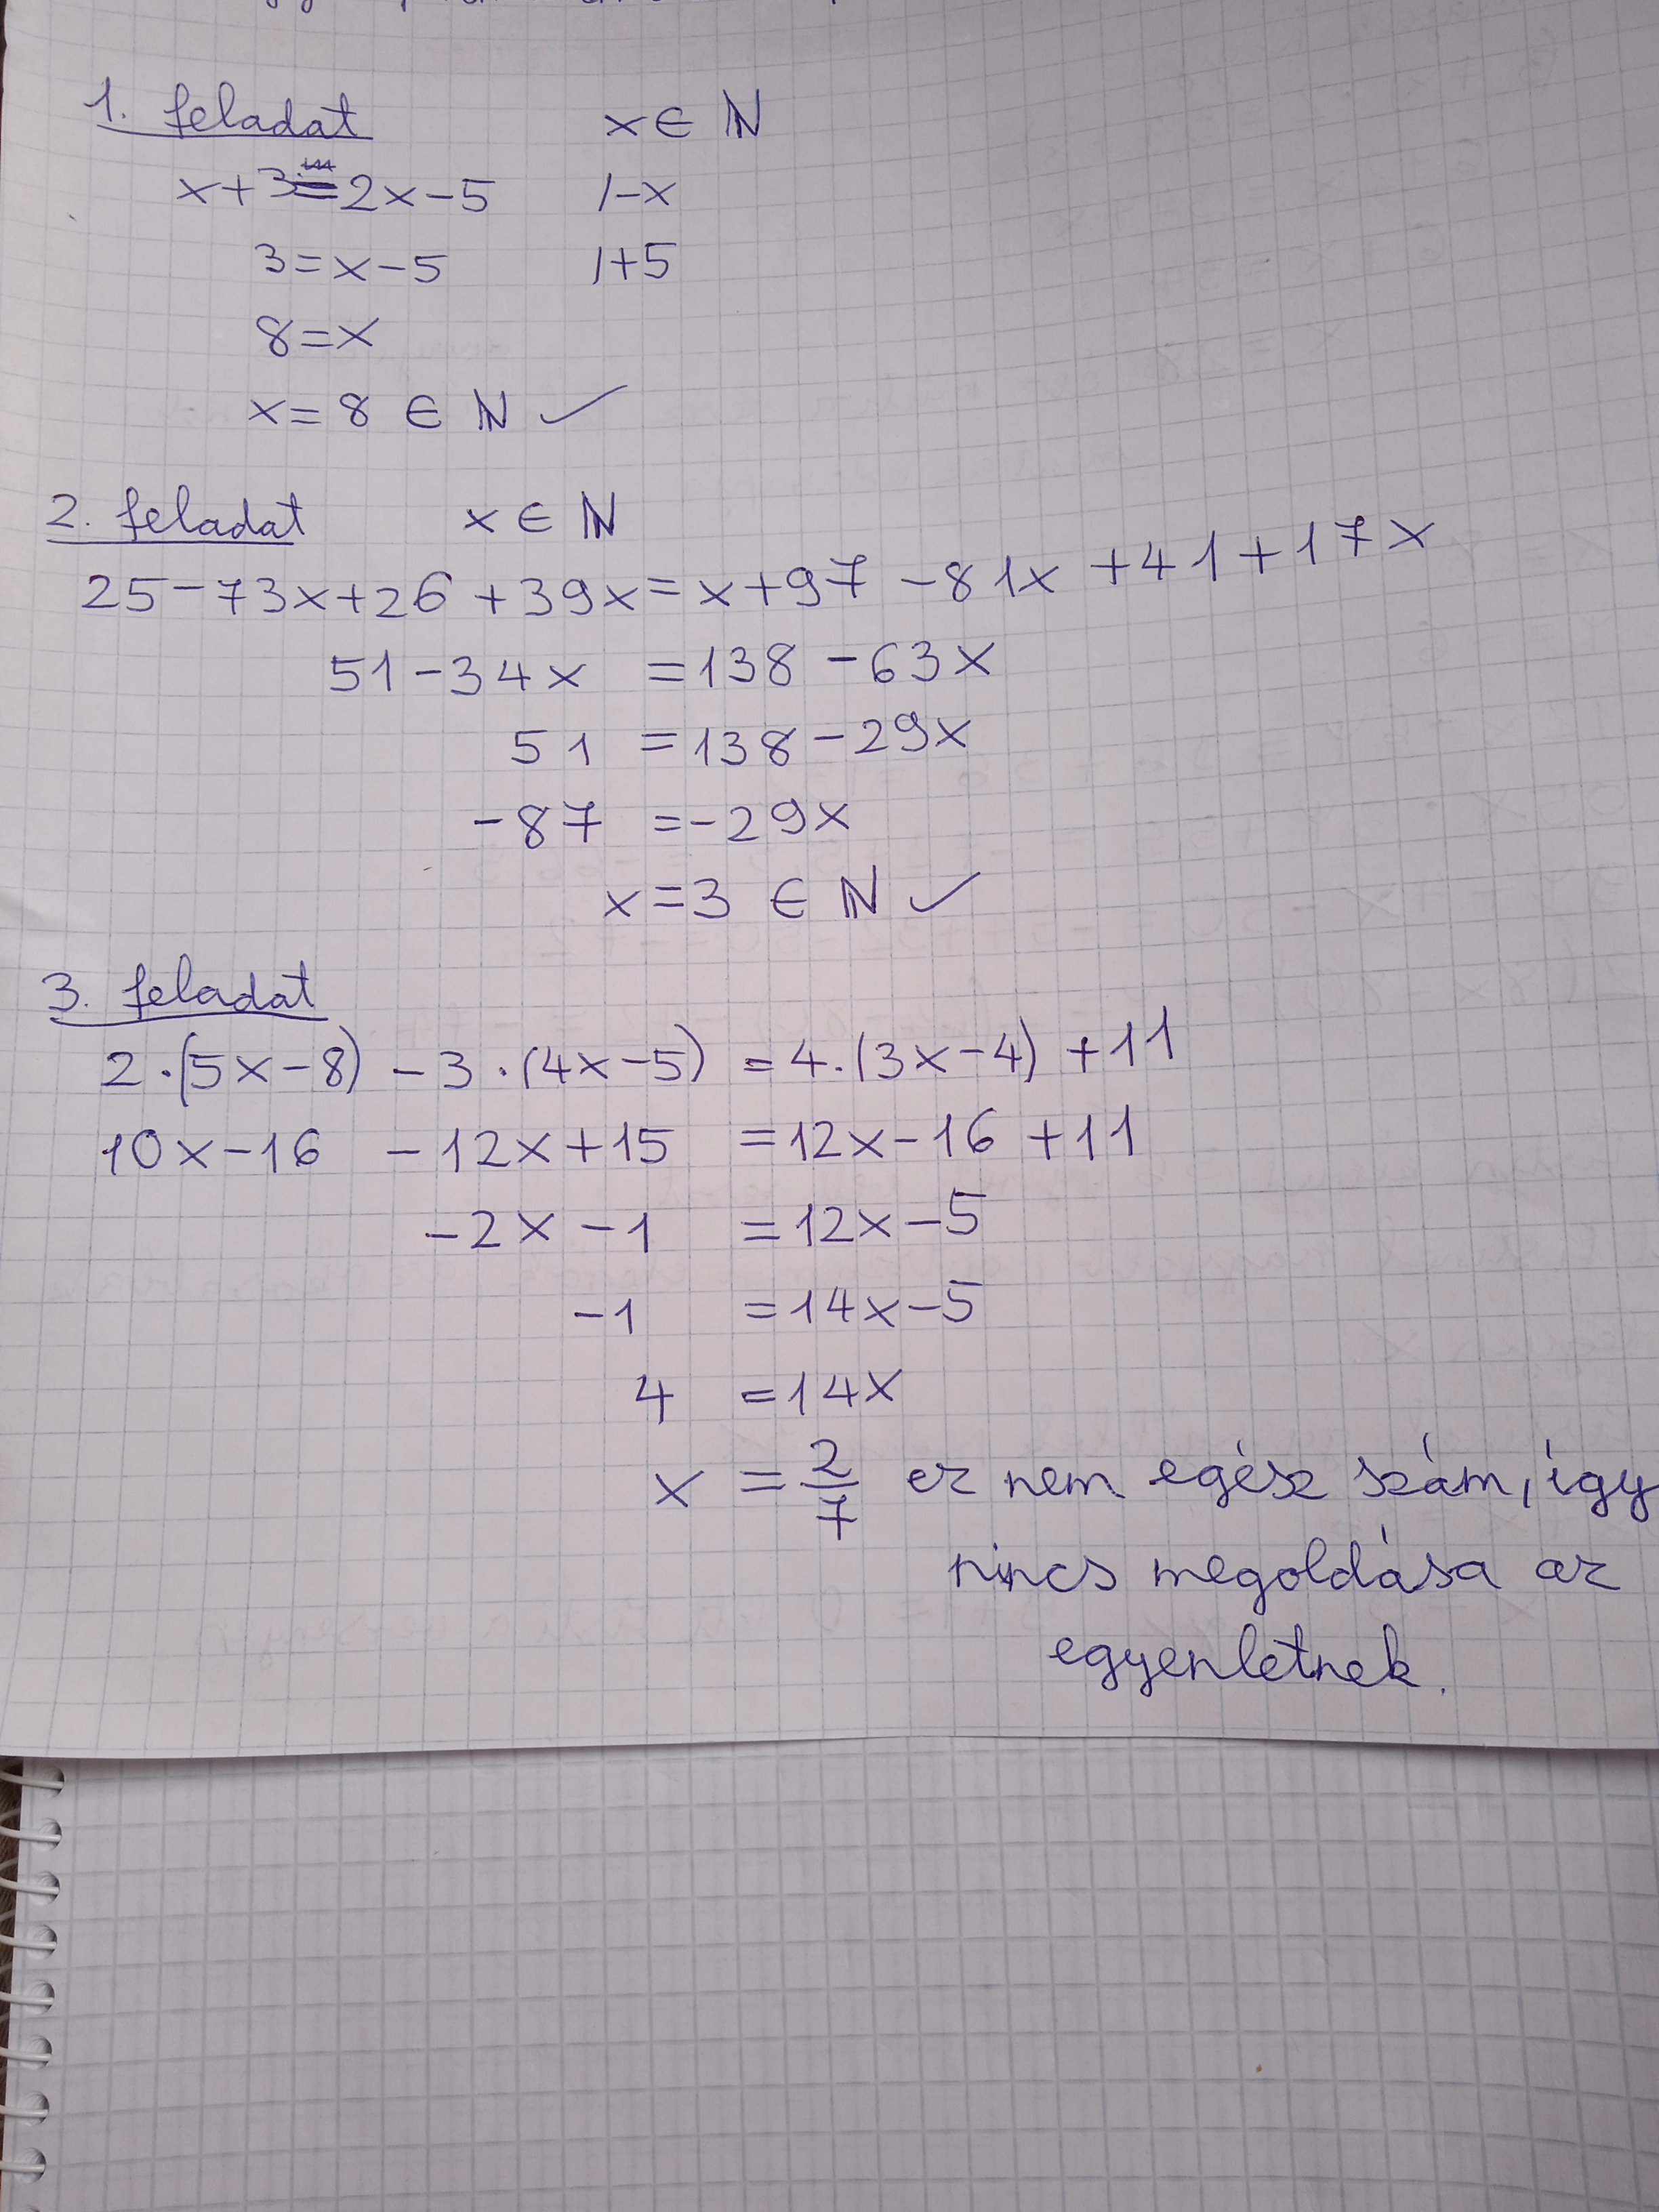 1. feladat x ∈ ℕ
x+3=2x-5 /-x
3=x-5 /+5
8=x
x=8 ∈ ℕ ✓
2. feladat x ∈ ℕ
25-73x+26+39x=x+97-81x+41+17x
51-34x =138-63x
51 =138-29x
-87 =-29x
x=3 ∈ ℕ ✓
3. feladat
2·(5x-8)-3·(4x-5) =4·(3x-4)+11
10x-16 -12x+15 =12x-16+11
-2x-1 =12x-5
-1 =14x-5
4 =14x
x =2/7 ez nem egész szám, így
nincs megoldása az
egyenletnek.